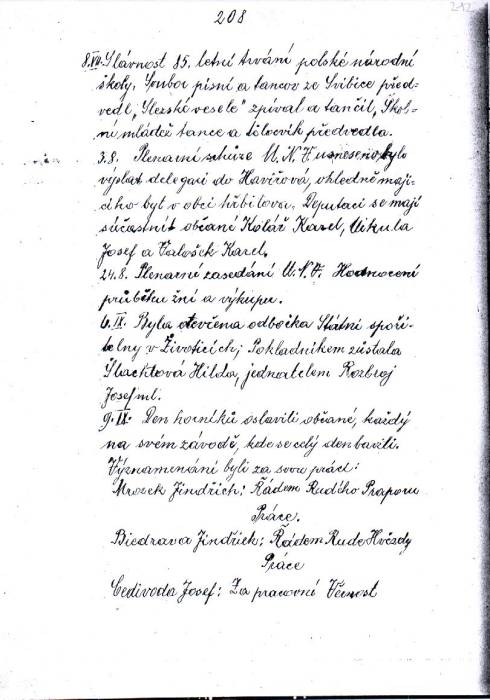 208
212
8.VII. Slávnost 85. letní trvání polské národní
školy. Soubor písní a tance ze Svibice před-
vedl „Slezské vesele" zpíval a tančil, Škol-
ní mládež tance a tělocvik předvedla.
3.8. Plenarní schůze M.N.V. usneseno bylo
výslat delegaci do Havířová, ohledně mají-
cího byt v obci hřbitova. Deputaci se mají
súčastnit občané Kolář Karel, Mikula
Josef a Valošek Karel.
24.8. Plenarné zasedání M.N.V. Hodnocení
průběhu žní a výkupu.
6.IX. Byla otevřena odbočka Státní spoři-
telny v Životicích; Pokladníkem zůstala
Slachtová Hilda, jednatelem Rozbroj
Josef ml.
9.IX. Den horníků oslavili občané, každý
na svém závodě, kde se celý den bavili.
Významenáni byli za svou práci:
Mrozek Jindřich: Řádem Rudého Praporu
Práce.
Biedrava Jindřich: Řádem Rude Hvězdy
Práce
Cedivoda Josef: Za pracovní Věrnost